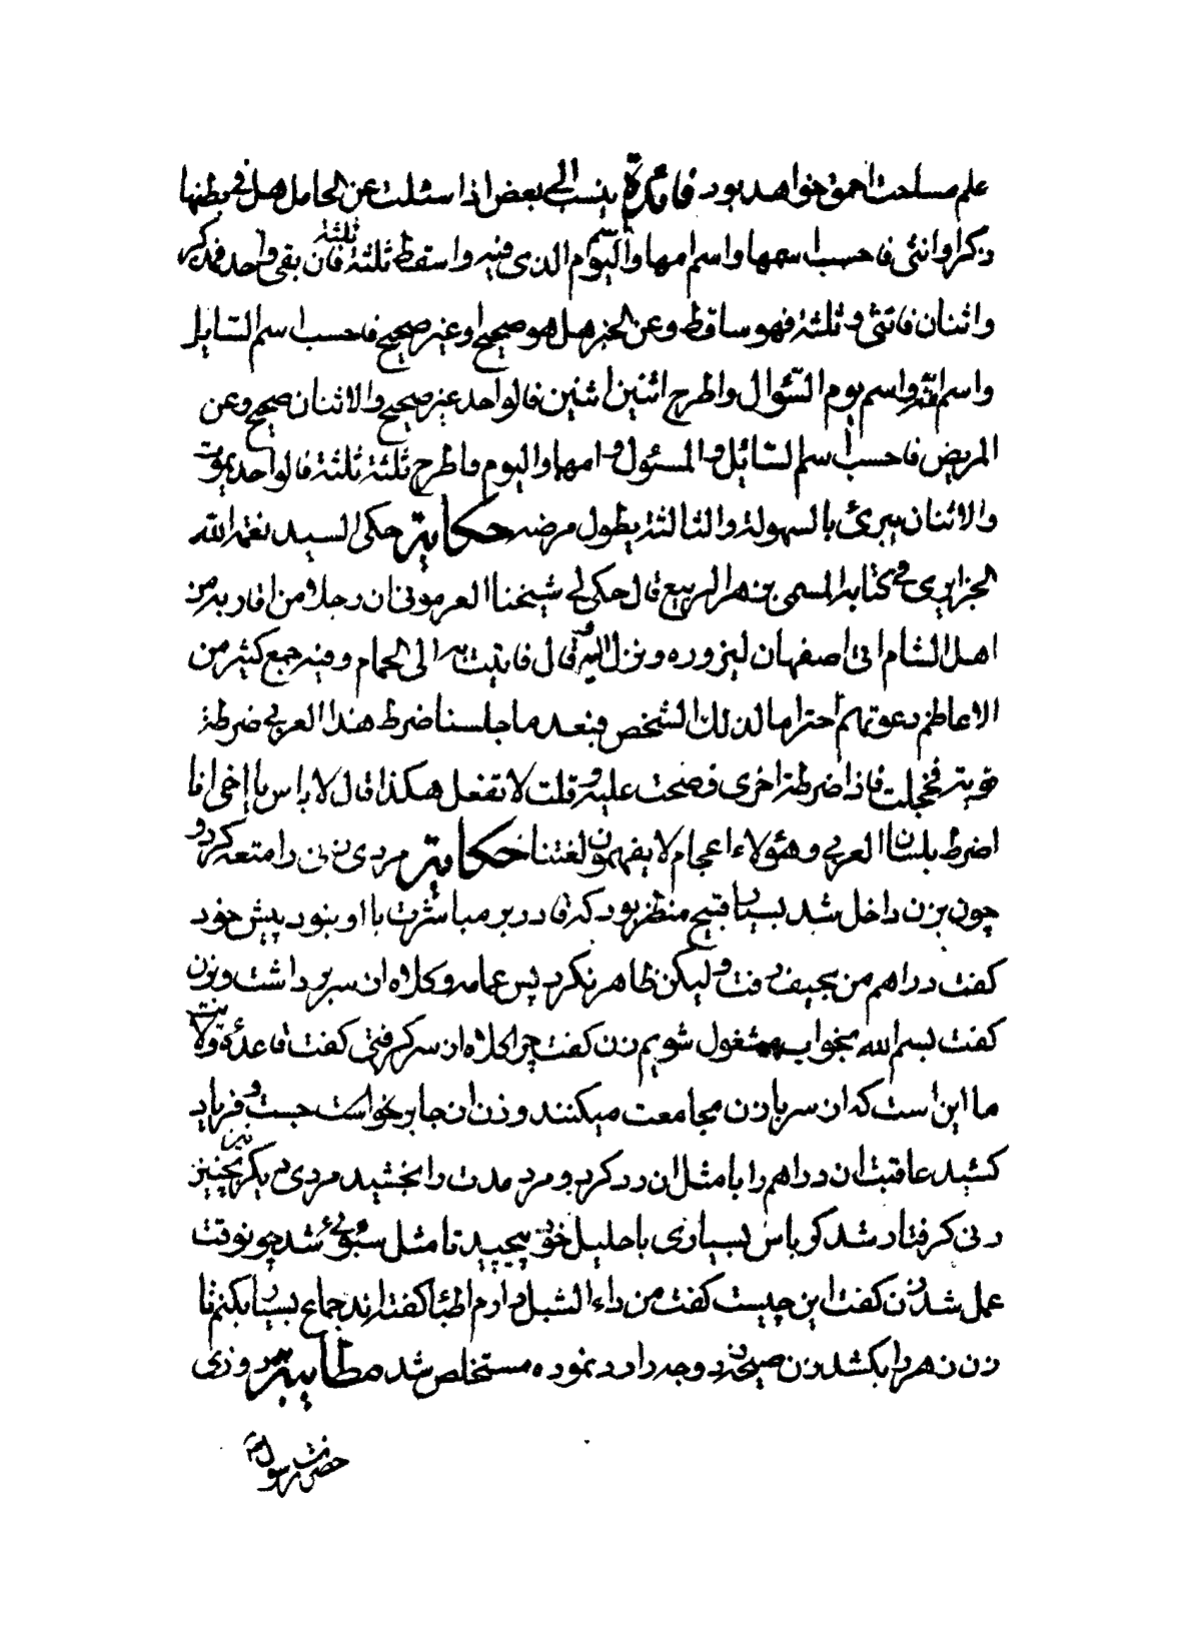 علم مساحت احمق خواهد بود فائدة ینسب الی بعض اذا سئلت عن الحامل هل فی بطنها
ذکرا وانثی فاحسب اسمها واسم امها واسم الیوم الذی فیه واسقط ثلثة ثلثة فان بقی واحد فذکر
واثنان فانثی و ثلثة فهو ساقط وعن الخبر هل هو صحیح او غیر صحیح فاحسب اسم السایل
واسم امه واسم یوم السّؤال واطرح اثنین اثنین فالواحد غیر صحیح والاثنان صحیح وعن
المریض فاحسب اسم السّائل و المسئول و امهما والیوم واطرح ثلثة ثلثة فالواحد یموت
والاثنان یبرئ بالسهولة والثالثة یطول مرضه حکایة حکی السید نعمة الله
الجزایری فی کتابه المسمی بزهر الربیع قال حکی لی شیخنا العرمونی ان رجلا من اقاربه من
اهل الشام اتی اصفهان لیزوره ونزل الیه قال فاتیت به الی الحمام وفیه جمع کثیر من
الاعاظم دعوتهم احتراما لذلک الشخص فبعد ما جلسنا ضرط هذا العربی ضرطة
قویة فخجلت فاذا ضرطة اخری فصحت علیه وقلت لا تفعل هکذا قال لا باس یا اخی انا
اضرط بلسان العربی وهٰؤلاء اعجام لا یفهمون لغتنا حکایة مردی زنی را متعه کرد و
چون بزن داخل شد بسیار قبیح منظر بود که قادر بر مباشرت با او نبود پیش خود
کفت دراهم من بحیف رفت ولیکن ظاهر نکرد پس عمامه وکلاه از سر برداشت وبزن
کفت بسم الله بخواب مشغول شویم زن کفت چرا کلاه از سر کرفتی کفت قاعدۀ ولایت
ما این است که از سر با زن مجامعت میکنند وزن از جا برخواست جست و فریاد
کشید عاقبت ان دراهم را با مثل ان رد کرد و مرد مدت را بخشید مردی دیکر نیز بچنین
زنی کرفتار شد کرباس بسیاری باحلیل خود پیچید تا مثل سبوئی شد چو نوقت
عمل شد زن کفت این چیست کفت من داء الشبل دارم اطبّا کفته اند جماع بسیار بکنم تا
زن زهر را بکشد زن صیحه زد وجه را رد نموده مستخلص شد مطایبة روزی
حضرت رسول